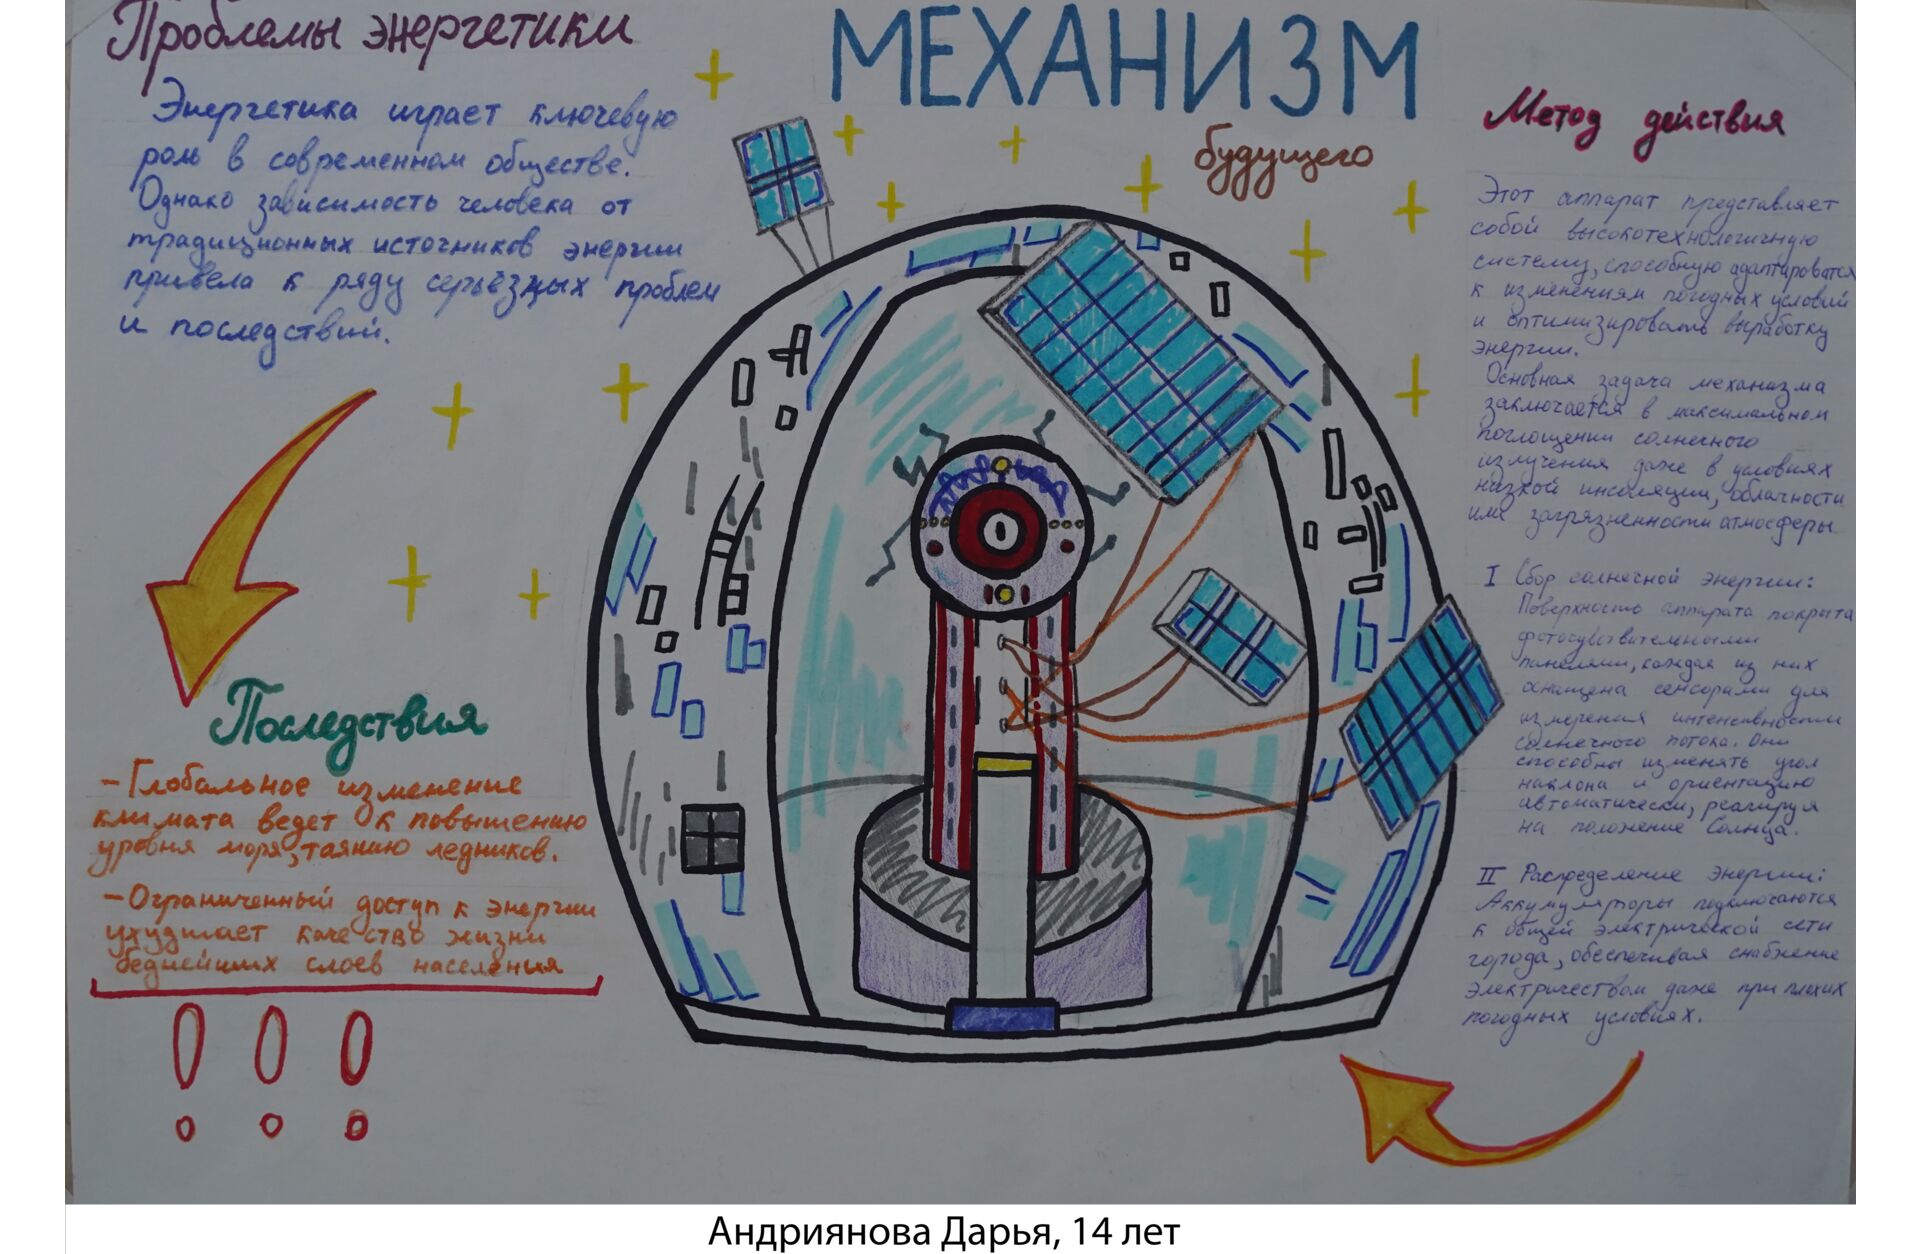 Проблемы энергетики
Энергетика играет ключевую
роль в современном обществе.
Однако зависимость человека от
традиционных источников энергии
привела к ряду серьёзных проблем
и последствий.
Последствия
- Глобальное изменение
климата ведет к повышению
уровня моря, таянию ледников.
- Ограниченный доступ к энергии
ухудшает качество жизни
беднейших слоев населения
!!!
МЕХАНИЗМ
будущего
Метод действия
Этот аппарат представляет
собой высокотехнологичную
систему, способную адаптироватся
к изменениям погодных условий
и оптимизировать выработку
энергии.
Основная задача механизма
заключается в максимальном
поглощении солнечного
излучения даже в условиях
низкой инсоляции, облачности
или загрязненности атмосферы.
I Сбор солнечной энергии:
Поверхность аппарата покрыта
фоточувствительными
панелями, каждая из них
оснащена сенсорами для
измерения интенсивности
солнечного потока. Они
способны изменять угол
наклона и ориентацию
автоматически, реагируя
на положение Солнца.
II Распределение энергии:
Аккумуляторы подключаются
к общей электрической сети
города, обеспечивая снабжение
электричеством даже при плохих
погодных условиях.
Андриянова Дарья, 14 лет